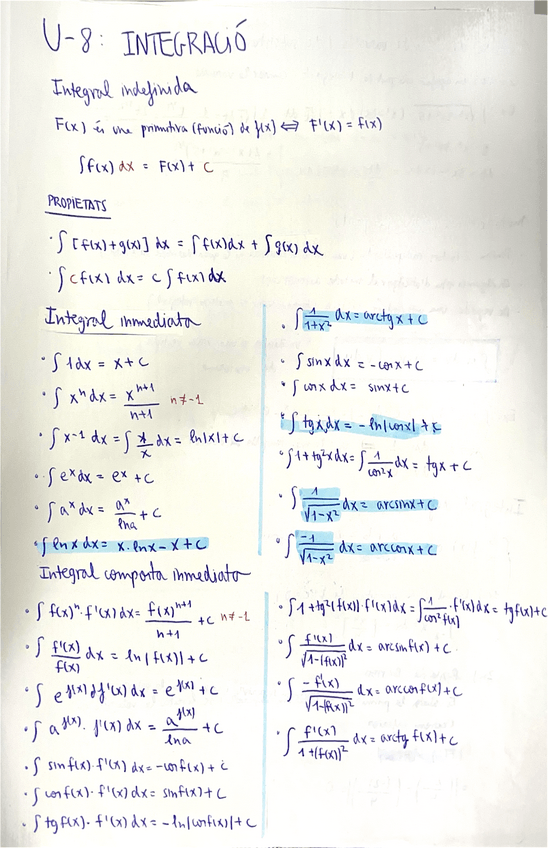 U-8: INTEGRACIÓ
Integral indefinida
F(x) és una primitiva (funció) de f(x) ⟺ F'(x) = f(x)
∫f(x) dx = F(x) + C
PROPIETATS
· ∫[f(x)+g(x)] dx = ∫f(x)dx + ∫g(x) dx
· ∫cf(x) dx = c∫f(x) dx
Integral immediata
· ∫1dx = x+C
· ∫xⁿ dx = xⁿ⁺¹/(n+1) n≠-1
· ∫x⁻¹ dx = ∫x/x dx = ln|x|+C
· ∫eˣdx = eˣ + C
· ∫aˣdx = aˣ/lna + C
· ∫ln x dx = x·lnx - x + C
· ∫1/(1+x²) dx = arctg x + C
· ∫sinx dx = -cosx + C
· ∫cosx dx = sinx+C
· ∫tgx dx = -ln|cosx| + x
· ∫1+tg²x dx = ∫1/cos²x dx = tgx + C
· ∫1/√(1-x²) dx = arcsinx + C
· ∫-1/√(1-x²) dx = arccosx + C
Integral composta immediata
· ∫f(x)ⁿ·f'(x)dx = f(x)ⁿ⁺¹/(n+1) + C n≠-1
· ∫f'(x)/f(x) dx = ln|f(x)| + C
· ∫e^f(x) f'(x) dx = e^f(x) + C
· ∫a^f(x)·f'(x) dx = a^f(x)/lna + C
· ∫sinf(x)·f'(x) dx = -cosf(x) + C
· ∫cosf(x)·f'(x) dx = sinf(x) + C
· ∫tgf(x)·f'(x) dx = -ln|cosf(x)| + C
· ∫1+tg²(f(x))·f'(x)dx = ∫1/cos²f(x)·f'(x)dx = tgf(x)+C
· ∫f'(x)/√(1-(f(x))²) dx = arcsinf(x) + C
· ∫-f'(x)/√(1-(f(x))²) dx = arccosf(x) + C
· ∫f'(x)/(1+(f(x))²) dx = arctg f(x) + C